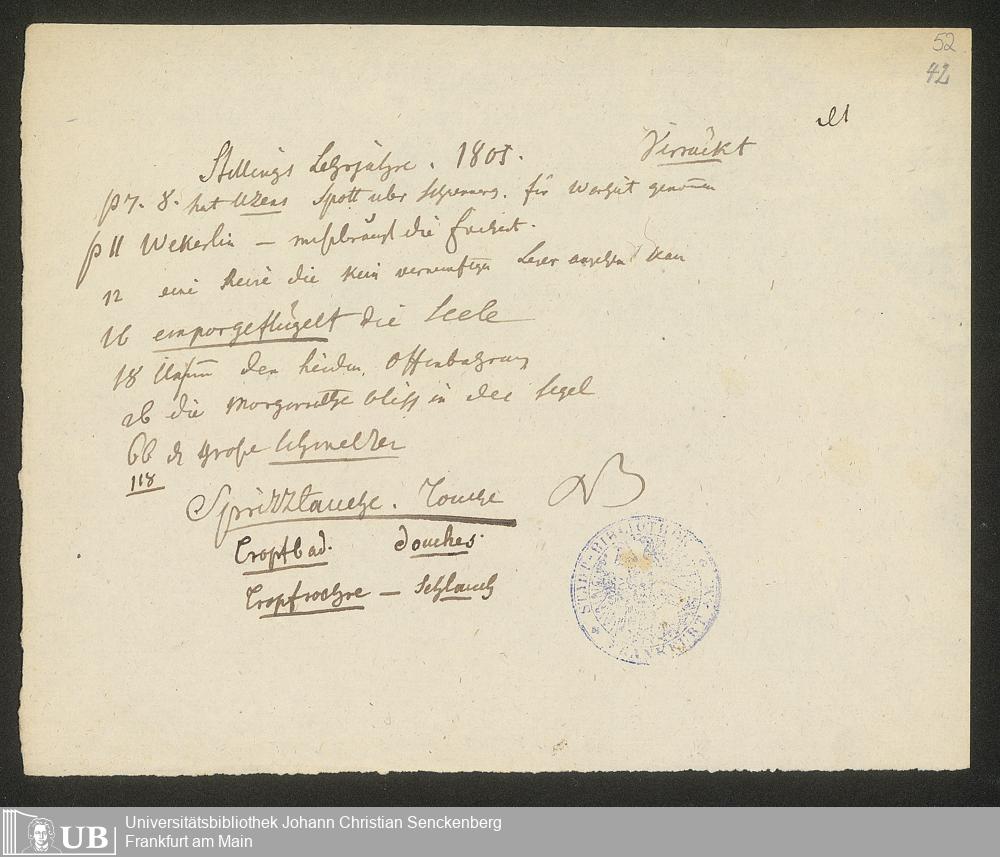 52
42
Stillings Lehrjahre. 1805. Verrückt
p 7. 8. hat Uzens Spott über für genomen
p 11 Wekerlin — missbraucht die Freiheit.
12 eine Reise die kein vernunftiger Leser kan
16 emporgeflügelt die Seele
18 den Heiden Offenbahrung
26 die Morgenröthe bliess in die Segel
66 der Grosse Schmelzer
118
Sprizztauche. Touche NB
Tropfbad. douches.
Tropfroehre — Schlauch
STADT-BIBLIOTHEK FRANKFURT A. M.
UB Universitätsbibliothek Johann Christian Senckenberg
Frankfurt am Main